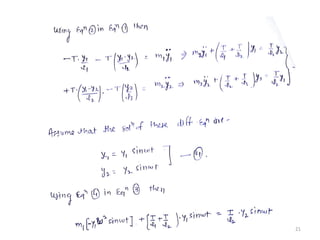 Using Eqⁿ ② in Eqⁿ ① then
-T·y₁/l₁ - T(y₁-y₂/l₂) = m₁ÿ₁ ⇒ m₁ÿ₁+(T/l₁+T/l₂)y₁ = T/l₂ y₂
+T(y₁-y₂/l₂) - T(y₂/l₃) = m₂ÿ₂ ⇒ m₂ÿ₂+(T/l₂+T/l₃)y₂ = T/l₂ y₁
Assume that the solⁿ of these diff Eqⁿ are -
y₁ = Y₁ sinωt
y₂ = Y₂ sinωt ] —④.
Using Eqⁿ ④ in Eqⁿ ③ then
m₁[-Y₁ω² sinωt] + (T/l₁+T/l₂)·Y₁ sinωt = T/l₂ ·Y₂ sinωt